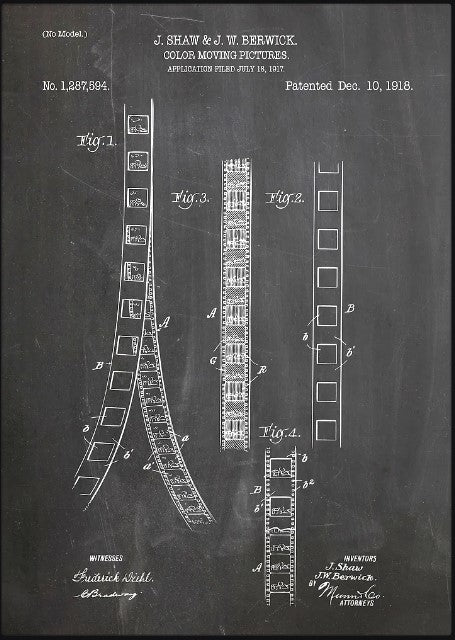 (No Model.)
J. SHAW & J. W. BERWICK.
COLOR MOVING PICTURES.
APPLICATION FILED JULY 18, 1917.
No. 1,287,594.
Patented Dec. 10, 1918.
Fig. 1.
Fig. 3.
Fig. 2.
A
A
B
b
b'
G
R
B
b
b'
a
a'
Fig. 4.
b
B
b²
b'
A
WITNESSES
Fredrick Diehl.
INVENTORS
J. Shaw
J.W. Berwick.
BY
Munn & Co.
ATTORNEYS